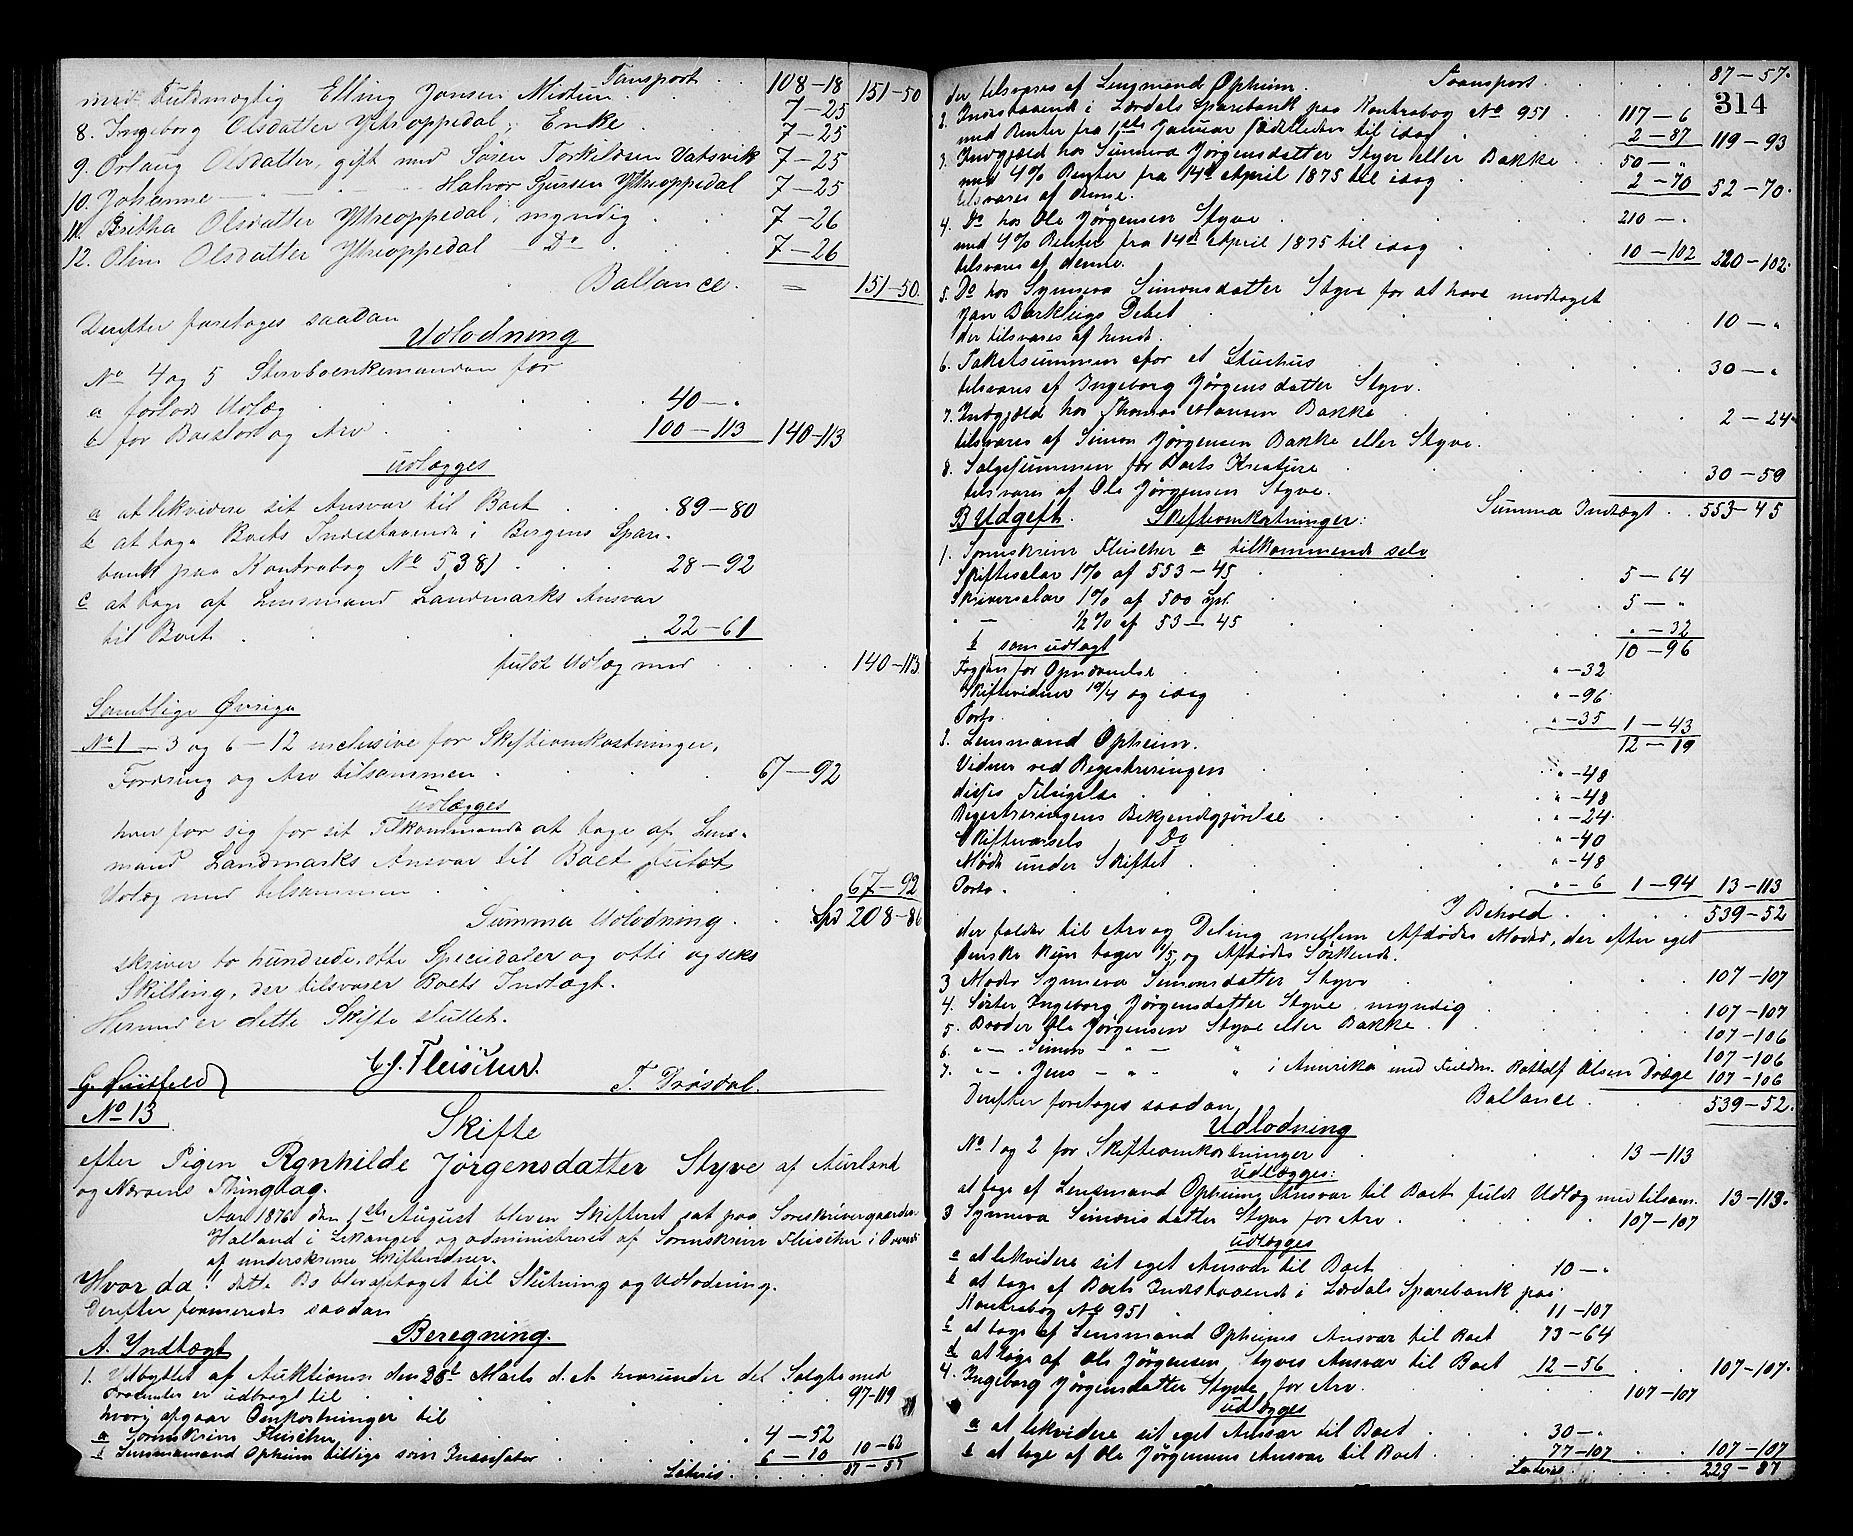 Transport . 108–18 151–50
med Fuldmægtig Elling Jonsen Midtun . 7–25
8. Ingeborg Olsdatter Ytreoppedal, Enke . 7–25
9. Orlaug Olsdatter, gift med Søren Torkildsen Vatsvik 7–25
10. Johanne — Halvor Sjursen Ytreoppedal 7–25
11. Britha Olsdatter Ytreoppedal, myndig . 7–26
12. Olina Olsdatter Ytreoppedal Do . 7–26
Ballance. = 151–50.
Derefter foretoges saadan
Udlodning
No 4 og 5 Stervboenkemanden for
a forlods Udlæg . 40–"
b for Boeslod og Arv . 100–113 140–113
udlægges
a at likvidere sit Ansvar til Boet . 89–80
b at tage Boets Indestaaende i Bergens Spare-
bank paa Kontrabog No 5381 . 28–92
c at tage af Lensmand Landmarks Ansvar
til Boet . 22–61
fuldt Udlæg med . 140–113
Samtlige Øvrige
No 1–3 og 6–12 inclusive for Skifteomkostninger,
Fordring og Arv tilsammen . 67–92
udlægges
hver for sig for sit Tilkommende at tage af Lens-
mand Landmarks Ansvar til Boet fuldt
Udlæg med tilsammen . 67–92
Summa Udlodning . Spd 208–86
skriver to hundrede, otte Speciedaler og otti og seks
Skilling, der tilsvarer Boets Indtægt.
Hermed er dette Skifte sluttet.
C.J. Fleischer.
G. Huitfeld T. Drøsdal.
No 13
Skifte
efter Pigen Ragnhilde Jørgensdatter Styve af Aurland
og Nærøens Thinglag.
Aar 1876 den 1ste August bleven Skifteret sat paa Sorenskrivergaarden
Halland i Lekanger og administreret af Sorenskriver Fleischer i Overvær
af underskrevne Skiftevidner.
Hvor da! dette Bo blev aptaget til Slutning og Udlodning.
Derefter formeredes saadan
Beregning.
A. Indtægt
1. Udbyttet af Auktionen den 28de Marts d. A. hvorunder det Solgte med
Procenter er udbragt til . 97–119
hvori afgaar Omkostninger til
a Sorenskriver Fleischer . 4–52
b Lensmand Opheim tillige som Incassator . 6–10 10–62
Lateris . 87–57
Transport . 87–57.
314
der tilsvares af Lensmand Opheim.
2. Indestaaende i Lærdals Sparebank paa Kontrabog No 951 . 117–6
med Renter fra 1ste Januar sidstleden til idag . 2–87 119–93
3. Indgjæld hos Sunneva Jørgensdatter Styve eller Bakke . 50–"
med 4% Renter fra 14de April 1875 til idag . 2–70 52–70.
tilsvares af denne.
4. Do hos Ole Jørgensen Styve . 210–"
med 4% Renter fra 14de April 1875 til idag . 10–102 220–102.
tilsvares af denne.
5. Do hos Synneva Simonsdatter Styve for at have modtaget
Jan Barkleigs Debet . 10–"
der tilsvares af hende.
6. Takstsummen for et Stuehus . 30–"
tilsvares af Ingeborg Jørgensdatter Styve.
7. Indgjæld hos Thomas Monsen Bakke . 2–24
tilsvares af Simon Jørgensen Bakke eller Styve.
8. Salgssummen for Boets Kreature . 30–59
tilsvares af Ole Jørgensen Styve. Summa Indtægt . 553–45
B Udgift. Skifteomkostninger:
1. Sorenskriver Fleischer a tilkommende selv
Skiftesalær 1% af 553–45 . 5–64
Skriversalær 1% af 500 Spd. . 5–"
" — ½% af 53–45 . "–32
b som udlagt 10–96
Fogden for Opnævnelse "–32
Skiftevidner 19/4 og idag "–96
Porto . "–35 1–43
2. Lensmand Opheim. 12–19
Vidner ved Registreringen . "–48
disses Tilsigelse . "–48
Registreringens Bekjendtgjørelse . "–24.
Skiftevarsels Do . "–40
Møde under Skiftet . "–48
Porto . "–6 1–94 13–113
I Behold . 539–52
der falder til Arv og Deling mellem Afdødes Moder, der efter eget
Ønske kun tager 1/5, og Afdødes Søskende.
3 Moder Synneva Simonsdatter Styve . 107–107
4. Søster Ingeborg Jørgensdatter Styve myndig . 107–107
5. Broder Ole Jørgensen Styve eller Bakke . 107–106
6. " — " Simon — " — " 107–106
7. " — " Jens — " — " i Amerika med Fuldm. Botholf Olsen Drægе 107–106
Ballance . 539–52.
Derefter foretoges saadan
Udlodning
No 1 og 2 for Skifteomkostninger . 13–113
udlægges:
at tage af Lensmand Opheims Ansvar til Boet fuldt Udlæg med tilsam. 13–113.
3 Synneva Simonsdatter Styve for Arv . 107–107
udlægges
a at likvidere sit eget Ansvar til Boet . 10–"
b at tage af Boets Indestaaende i Lærdals Sparebank paa
Kontrabog No 951 . 11–107
c at tage af Lensmand Opheims Ansvar til Boet 73–64
d at tage af Ole Jørgensen Styves Ansvar til Boet 12–56 . 107–107.
4. Ingeborg Jørgensdatter Styve for Arv . 107–107
udlægges
a at likvidere sit eget Ansvar til Boet . 30–"
b at tage af Ole Jørgensens Ansvar til Boet . 77–107 . 107–107
Lateris . 229–87